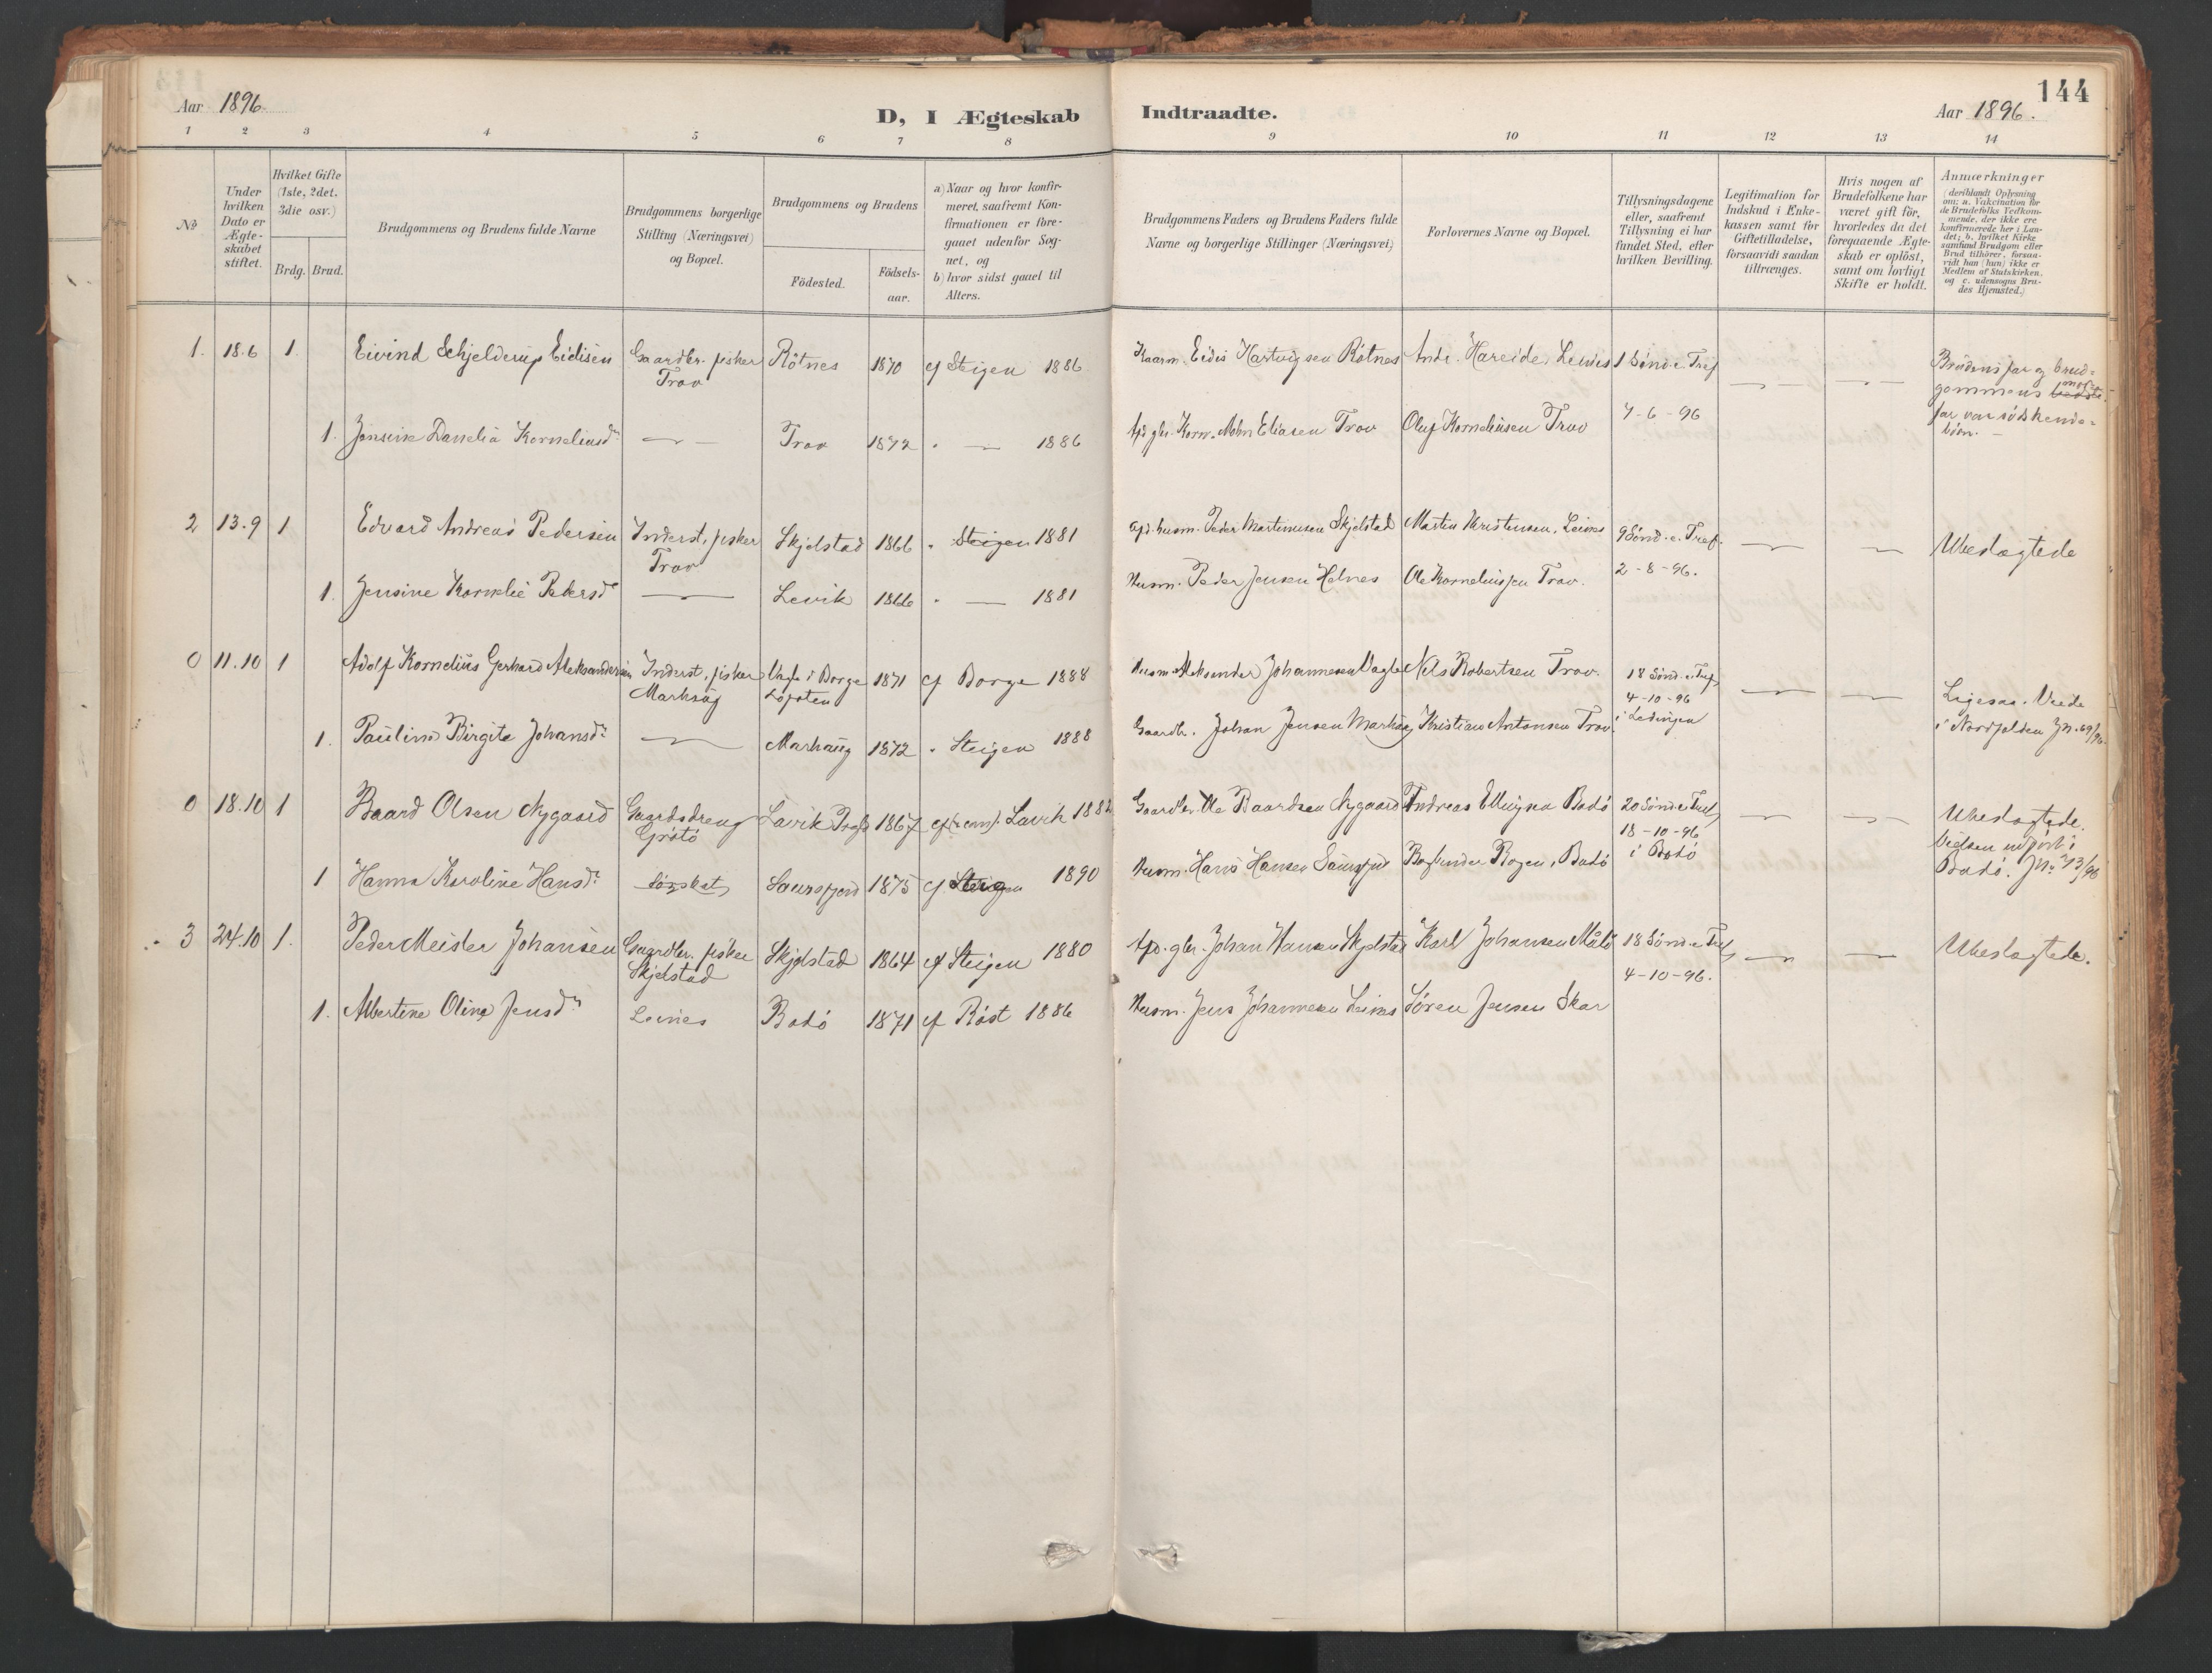 144
Aar 1896.
D, I Ægteskab Indtraadte.
Aar 1896.
1 2 3 4 5 6 7 8 9 10 11 12 13 14
No
Under hvilken Dato er Ægteskabet stiftet.
Hvilket Gifte (1ste, 2det, 3die osv.)
Brdg. Brud.
Brudgommens og Brudens fulde Navne
Brudgommens borgerlige Stilling (Næringsvei) og Bopæl.
Brudgommens og Brudens
Födested.
Födsels-aar.
a) Naar og hvor konfirmeret, saafremt Konfirmationen er foregaaet udenfor Sognet, og
b) hvor sidst gaaet til Alters.
Brudgommens Faders og Brudens Faders fulde Navne og borgerlige Stillinger (Næringsvei)
Forlovernes Navne og Bopæl.
Tillysningsdagene eller, saafremt Tillysning ei har fundet Sted, efter hvilken Bevilling.
Legitimation for Indskud i Enkekassen samt for Giftetilladelse, forsaavidt saadan tiltrænges.
Hvis nogen af Brudefolkene har været gift för, hvorledes da det foregaaende Ægteskab er oplöst, samt om lovligt Skifte er holdt.
Anmærkninger
(deriblandt Oplysning om: a. Vakcination for de Brudefolks Vedkommende, der ikke ere konfirmerede her i Landet; b. hvilket Kirkesamfund Brudgom eller Brud tilhörer, forsaavidt han (hun) ikke er Medlem af Statskirken, og c. udensogns Brudes Hjemsted.)
1. 18.6 1. Eivind Schjelderup Eidisen Gaardbr. fisker Røtnes 1870 cf Steigen 1886 Kaarm. Eidis Hartvigsen Røtnes Andr. Hareide, Leines 1 Sønd. e. Tref
Trov
7-6-96
Brudens far og brud=
gommens mor
far var sødskende=
børn.
1. Jensine Danelia Korneliusd. Trov 1872 1886 Korn. Eliasen Trov Oluf Korneliusen Trov
2 13.9 1 Edvard Andreas Pedersen Inderst, fisker Skjelstad 1866 Steigen 1881 Peder Martinusen Skjelstad Martin Kristensen, Leines 9 Sønd. e. Tref. Ubeslægtede
Trov
2-8-96.
1. Jensine Kornelie Pedersd. Levik 1866 1881 Husm. Peder Jensen Helnes Ole Korneliussen Trov.
0 11.10 1 Adolf Kornelius Gerhard Aleksandersen Inderst, fisker i Borge 1871 cf Borge 1888 Husm. Aleksander Johannesen Nils Robertsen Trov. 18 Sønd. e. Tref
Markaug Lofoten
4-10-96
i Lødingen
Ligesaa. Viede
i Nordfolden Jn. 69/96.
1. Pauline Birgite Johansd. Markaug 1872 Steigen 1888 Gaardbr. Johan Jensen Markaug Kristian Antonsen Trov.
0 18.10 1 Baard Olsen Nygaard Gaardsdreng Lavik 1867 cf Lavik 1882 Gaardbr. Ole Baardsen Nygaard Andreas Ellingsen Bodø 20 Sønd. e. Tref
Grøtø
18-10-96
i Bodø
Ubeslægtede.
Vielsen udført i
Bodø. Jn. 73/96
1 Hanna Karoline Hansd. Sørskot Saursfjord 1875 cf. Steigen 1890 Husm. Hans Hansen Saursfjord Bogbinder Bogen, Bodø
3 24.10 1. Peder Meisler Johansen Gaardbr. fisker Skjelstad 1864 cf Steigen 1880 Afd. gbr. Johan Hansen Skjelstad Karl Johansen Måló 18 Sønd. e. Tref Ubeslægtede.
Skjelstad
4-10-96.
1. Albertine Oline Jensd. Leines Bodø 1871 cf Røst 1886 Husm. Jens Johannesen Leines Søren Jensen Skar